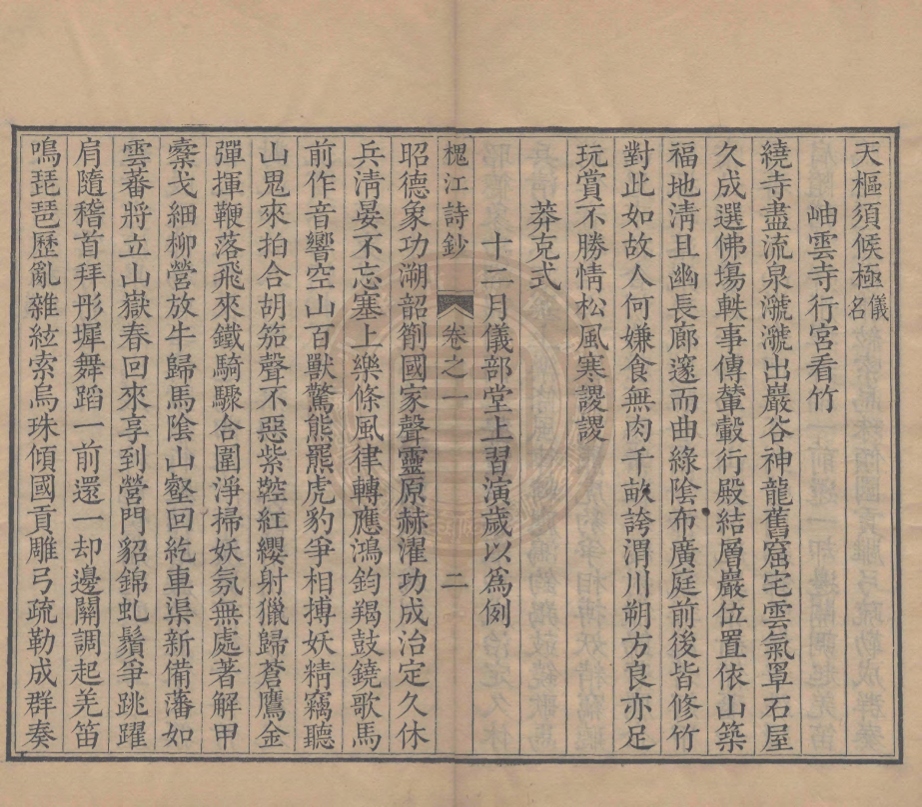 天樞須候極儀名
岫雲寺行宮看竹
繞寺盡流泉㶁㶁出巖谷神龍舊窟宅雲氣罩石屋
久成選佛塲軼事傳輦轂行殿結層巖位置依山築
福地淸且幽長廊邃而曲綠陰布廣庭前後皆修竹
對此如故人何嫌食無肉千畝誇渭川朔方良亦足
玩賞不勝情松風寒謖謖
莽克式
十二月儀部堂上習演歲以爲例
槐江詩鈔 卷之一 二
昭德象功溯韶箾國家聲靈原赫濯功成治定久休
兵淸晏不忘塞上樂條風律轉應鴻鈞羯鼓鐃歌馬
前作音響空山百獸驚熊羆虎豹爭相搏妖精竊聽
山鬼來拍合胡笳聲不惡紫鞚紅纓射獵歸蒼鷹金
彈揮鞭落飛來鐵騎驟合圍淨掃妖氛無處著解甲
櫜戈細柳營放牛歸馬陰山壑回紇車渠新備藩如
雲蕃將立山嶽春回來享到營門貂錦虬鬚爭跳躍
肩隨稽首拜彤墀舞蹈一前還一却邊關調起羌笛
鳴琵琶歷亂雜絃索烏珠傾國貢雕弓疏勒成群奏